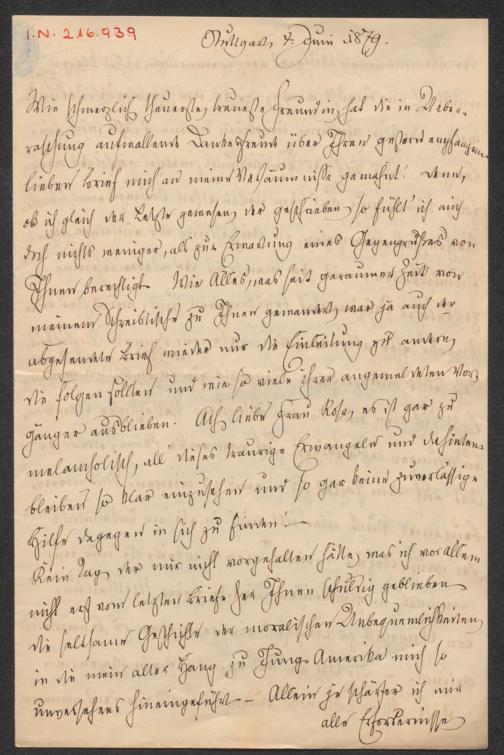 I.N. 216.939
Stuttgart, 4. Juni 1879.
Wie schmerzlich, theuerste, treueste Freundin, hat die in Ueber-
raschung aufwallende Dankesfreude über Ihren gestern empfangenen
lieben Brief mich an meine Versäumnisse gemahnt! Denn,
ob ich gleich der Letzte gewesen, der geschrieben, so fühlt' ich mich
doch nichts weniger, als zur Erwartung eines Gegengrußes von
Ihnen berechtigt. Wie Alles, was seit geraumer Zeit von
meinem Schreibtische zu Ihnen gewandert, war ja auch der
abgesendete Brief wieder nur die Einleitung zu andern,
die folgen sollten und wie so viele ihrer angemeldeten Vor-
gänger ausblieben. Ach, liebe Frau Rosa, es ist gar zu
melancholisch, all' dieses traurige Ermangeln und Dahinten-
bleiben so klar einzusehen und so gar keine zuverlässige
Hilfe dagegen in sich zu finden! —
Kein Tag, der mir nicht vorgehalten hätte, was ich vor allem
nicht erst vom letzten Briefe her Ihnen schuldig geblieben:
die seltsame Geschichte der moralischen Unbequemlichkeiten,
in die mein alter Hang zu Jung-Amerika mich so
unversehens hineingeführt. — Allein je schärfer ich mir
alle Erfordernisse